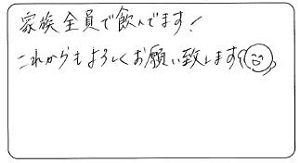 家族全員で飲んでます!
これからもよろしくお願い致します